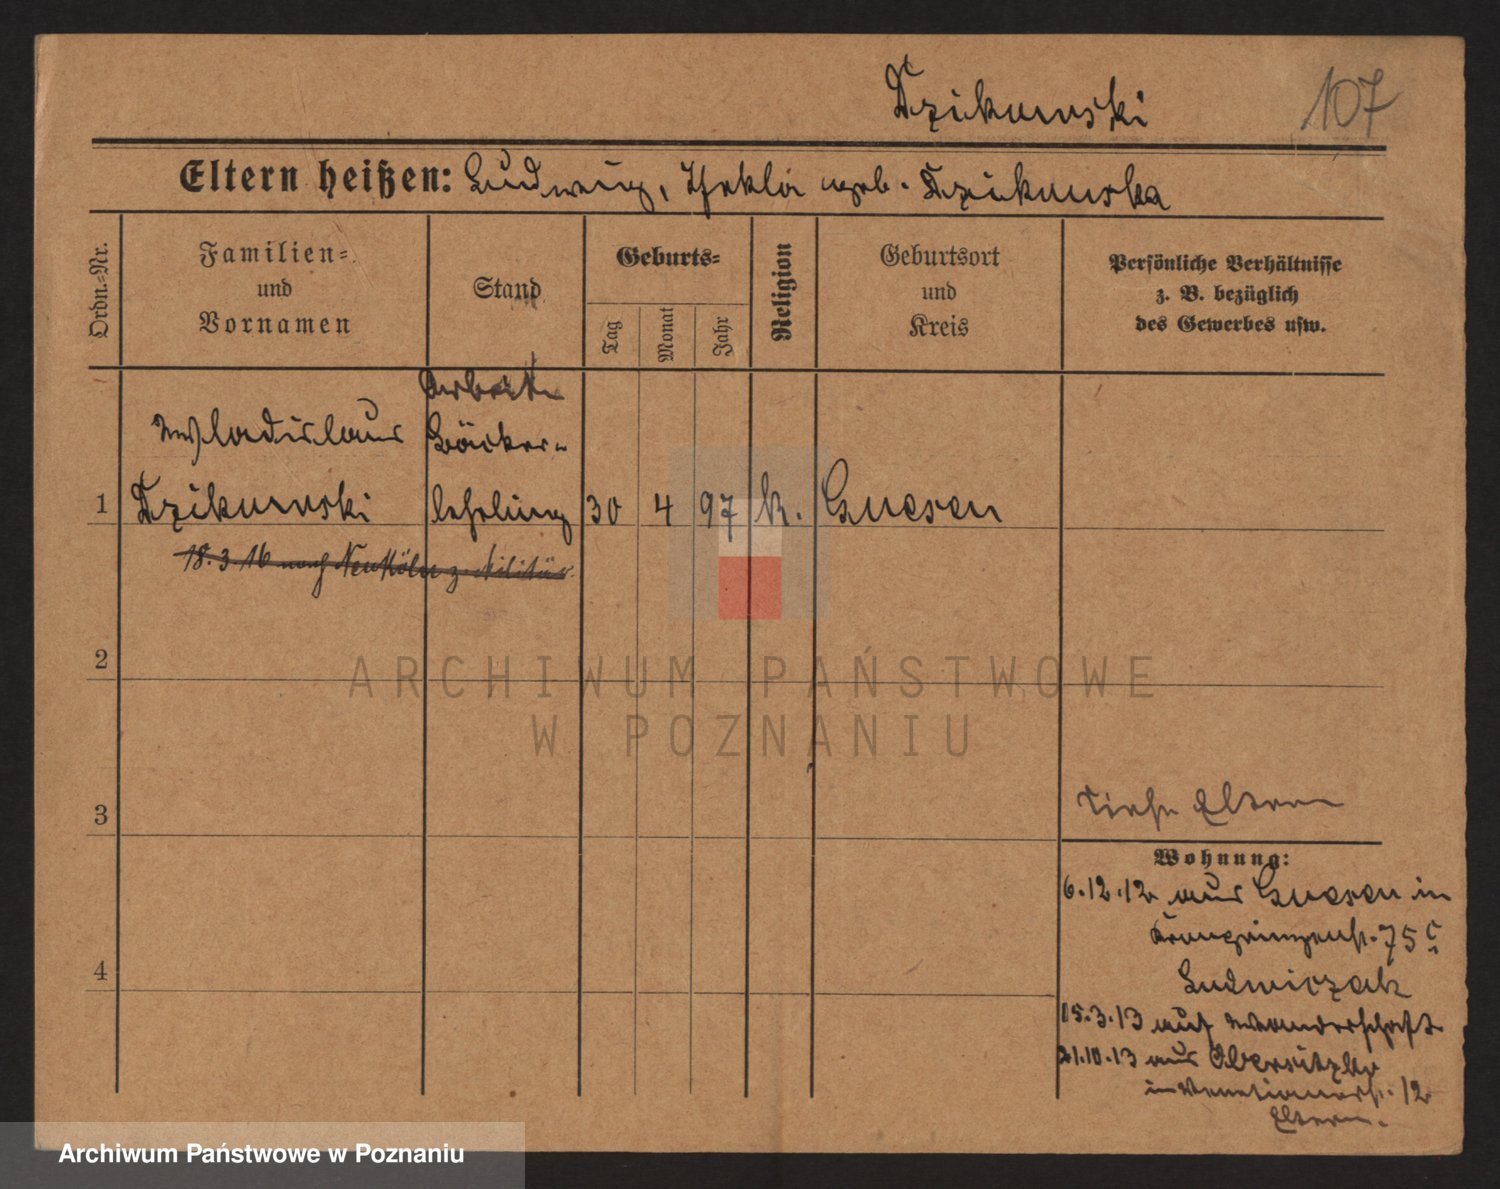 Dzikowski 107
Eltern heißen: Ludwig, Thekla geb. Dzikowska
Ordn.-Nr.
Familien-
und
Vornamen
Stand
Geburts-
Tag
Monat
Jahr
Religion
Geburtsort
und
Kreis
Persönliche Verhältnisse
z. B. bezüglich
des Gewerbes usw.
Arbeiter
Wladislaus Bäcker-
1 Dzikowski lehrling 30 4 97 k. Gnesen
18.3.16 nach Neukölln z. Militär
2
3
siehe Eltern
Wohnung:
6.12.12 aus Gnesen in
Kronprinzenstr. 75 c
4
Ludwiczak
15.3.13 auf Wanderschaft
21.10.13 aus Obersitzko
in Venetianerstr. 12
Eltern.
ARCHIWUM PAŃSTWOWE
W POZNANIU
Archiwum Państwowe w Poznaniu